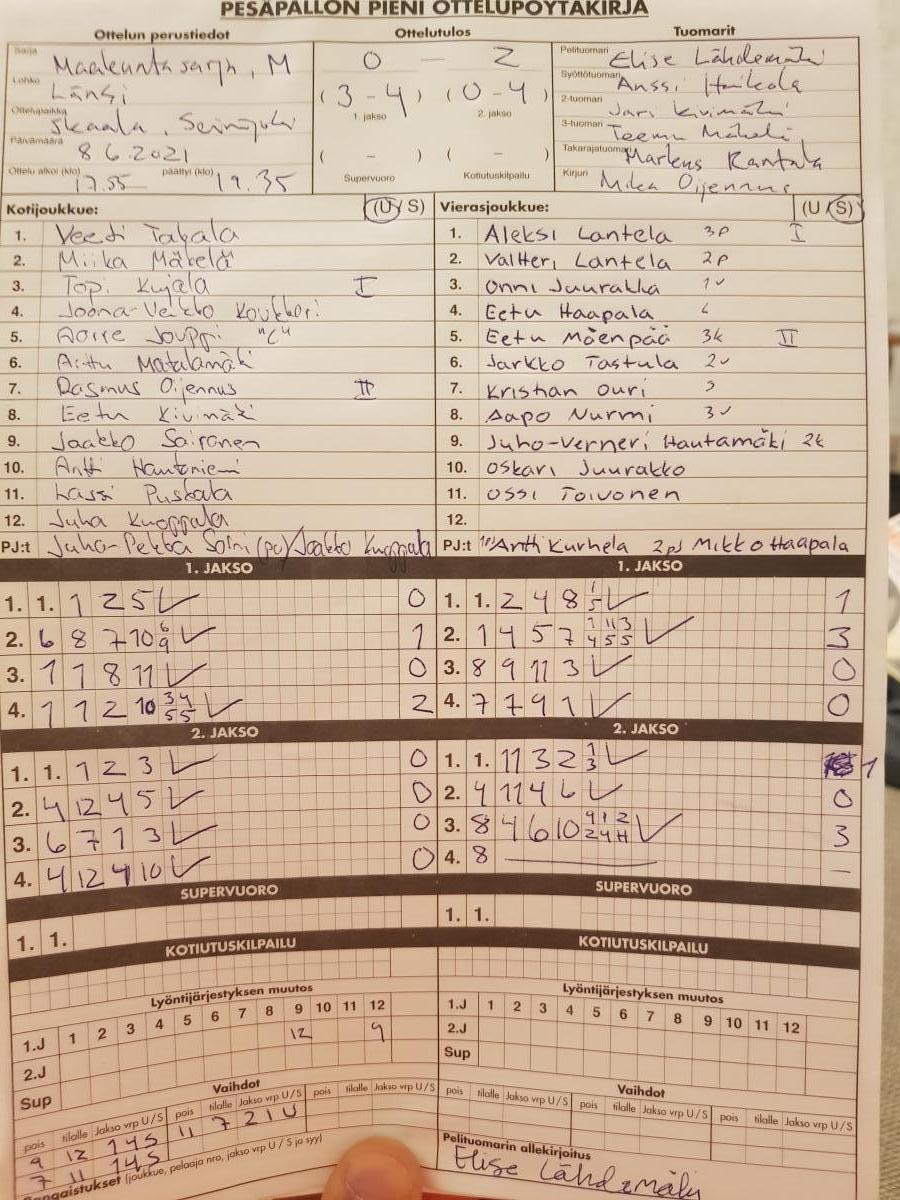 PESÄPALLON PIENI OTTELUPÖYTÄKIRJA
Ottelun perustiedot Ottelutulos Tuomarit
Sarja Maakuntasarja, M
Lohko Länsi
Ottelupaikka Skaala, Seinäjoki
Päivämäärä 8.6.2021
Ottelu alkoi (klo) 17.55 päättyi (klo) 19.35
0 — 2
(3-4) (0-4)
1. jakso 2. jakso
( - ) ( - )
Supervuoro Kotiutuskilpailu
Pelituomari Elise Lähdemäki
Syöttötuomari Anssi Haikola
2-tuomari Jari Kivimäki
3-tuomari Teemu Mäkelä
Takarajatuomari Markus Rantala
Kirjuri Mika Oijennus
Kotijoukkue: (U/S)
1. Veeti Takala
2. Miika Mäkelä
3. Topi Kujala I
4. Joona-Veikko Koukkari
5. Aarre Jouppi "C"
6. Arttu Matalamäki
7. Rasmus Oijennus II
8. Eetu Kivimäki
9. Jaakko Sairanen
10. Antti Hautaniemi
11. Lassi Puskala
12. Juha Kuoppala
PJ:t Juha-Pekka Soini (pj) Jaakko Kuoppala
Vierasjoukkue: (U/S)
1. Aleksi Lantela 3P I
2. Valtteri Lantela 2P
3. Onni Juurakko 1v
4. Eetu Haapala L
5. Eetu Mäenpää 3k II
6. Jarkko Tastula 2v
7. Kristian Ouri S
8. Aapo Nurmi 3v
9. Juho-Verneri Hautamäki 2k
10. Oskari Juurakko
11. Ossi Toivonen
12.
PJ:t Antti Kurhela 2pj Mikko Haapala
1. JAKSO
1. 1. 1 2 5 0
2. 6 8 7 10 6 9 1
3. 1 1 8 11 0
4. 1 1 2 10 3 4 5 5 2
1. JAKSO
1. 1. 2 4 8 1 5 1
2. 1 4 5 7 1 11 3 4 5 5 3
3. 8 9 11 3 0
4. 7 7 9 1 0
2. JAKSO
1. 1. 1 2 3 0
2. 4 12 4 5 0
3. 6 7 1 3 0
4. 4 12 4 10 0
2. JAKSO
1. 1. 11 3 2 1 3 1
2. 4 11 4 6 0
3. 8 4 6 10 9 1 2 2 4 11 3
4. 8 — –
SUPERVUORO
1. 1.
SUPERVUORO
1. 1.
KOTIUTUSKILPAILU
KOTIUTUSKILPAILU
Lyöntijärjestyksen muutos
1.J 1 2 3 4 5 6 7 8 9 10 11 12
2.J 12 9
Sup
Lyöntijärjestyksen muutos
1.J 1 2 3 4 5 6 7 8 9 10 11 12
2.J
Sup
Vaihdot
pois tilalle Jakso vrp U/S pois tilalle Jakso vrp U/S pois tilalle Jakso vrp U/S
9 12 1 4 S 11 7 2 1 U
7 11 1 4 S
Vaihdot
pois tilalle Jakso vrp U/S pois tilalle Jakso vrp U/S pois tilalle Jakso vrp U/S
Rangaistukset (joukkue, pelaaja nro, jakso vrp U/S ja syy)
Pelituomarin allekirjoitus
Elise Lähdemäki